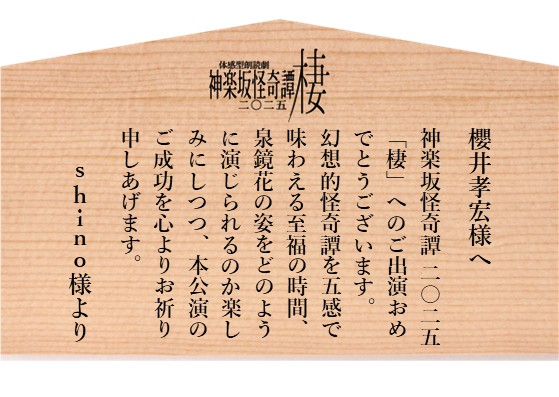 体感型朗読劇
神楽坂怪奇譚
二〇二五
棲
櫻井孝宏様へ
神楽坂怪奇譚 二〇二五
「棲」へのご出演おめ
でとうございます。
幻想的怪奇譚を五感で
味わえる至福の時間、
泉鏡花の姿をどのよう
に演じられるのか楽し
みにしつつ、本公演の
ご成功を心よりお祈り
申しあげます。
shino様より